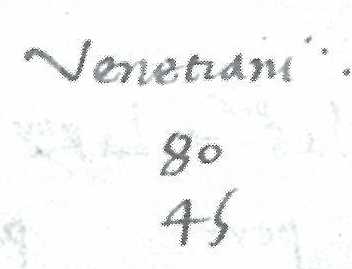 Venetiani
80
45